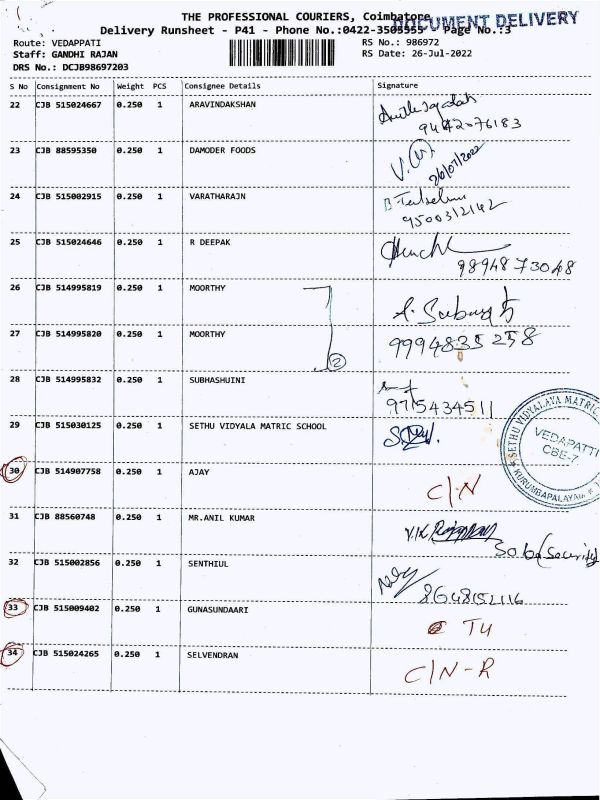 THE PROFESSIONAL COURIERS, Coimbatore
DOCUMENT DELIVERY
Delivery Runsheet - P41 - Phone No.:0422-3505555 - Page No.:3
Route: VEDAPPATI
RS No.: 986972
Staff: GANDHI RAJAN
RS Date: 26-Jul-2022
DRS No.: DCJB98697203
S No Consignment No Weight PCS Consignee Details Signature
22 CJB 515024667 0.250 1 ARAVINDAKSHAN
23 CJB 88595350 0.250 1 DAMODER FOODS
26/07/2022
24 CJB 515002915 0.250 1 VARATHARAJN
9500312142
25 CJB 515024646 0.250 1 R DEEPAK
9894873048
26 CJB 514995819 0.250 1 MOORTHY
27 CJB 514995820 0.250 1 MOORTHY
9994835258
2
28 CJB 514995832 0.250 1 SUBHASHUINI
9715434511
29 CJB 515030125 0.250 1 SETHU VIDYALA MATRIC SCHOOL
SETHU VIDYALAYA MATRIC
VEDAPATTI
CBE-7
KURUMBAPALAYAM
30 CJB 514907758 0.250 1 AJAY C/N
31 CJB 88560748 0.250 1 MR.ANIL KUMAR
(Security)
32 CJB 515002856 0.250 1 SENTHIUL
33 CJB 515009402 0.250 1 GUNASUNDAARI
34 CJB 515024265 0.250 1 SELVENDRAN C/N-R